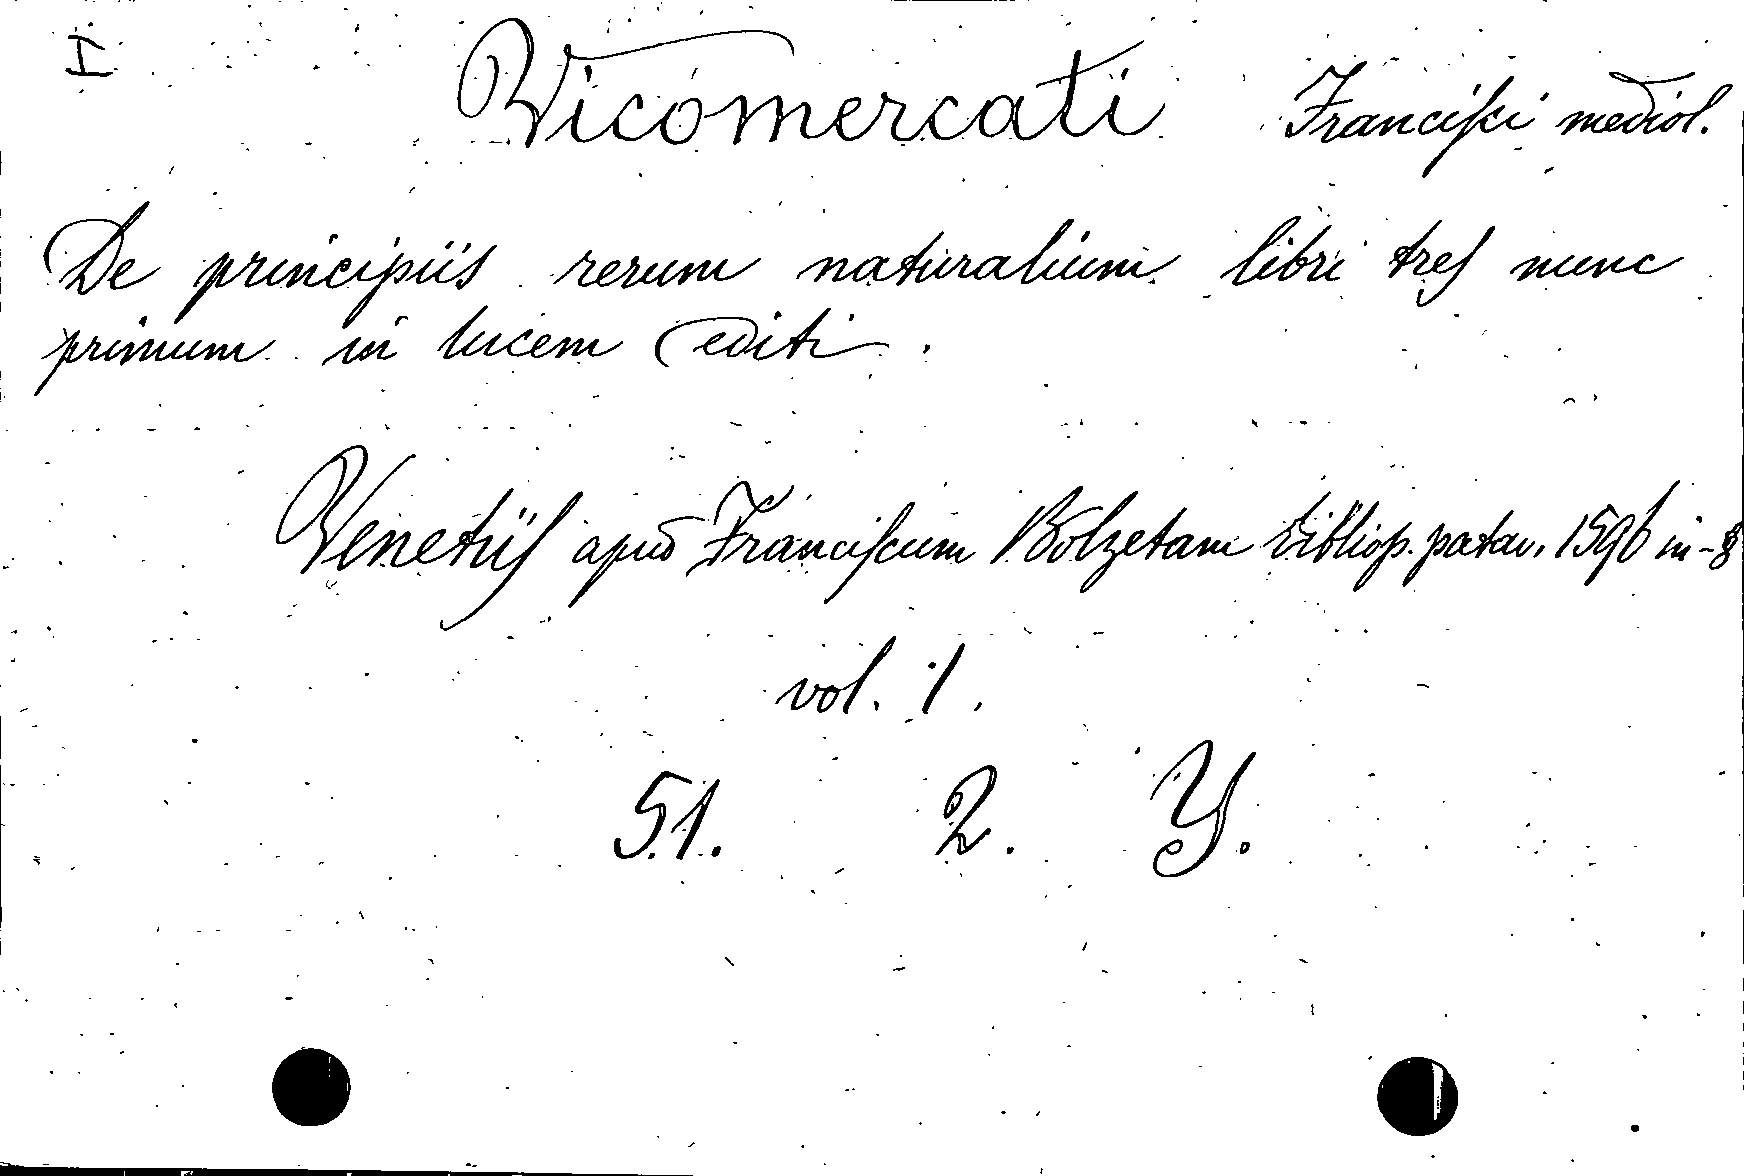 I
Vicomercati Franciſci mediol.
De principiis rerum naturalium libri treſ nunc
primum in lucem editi.
Venetiiſ apud Franciſcum Bolzetam bibliop. patav. 1596 in-8
vol. 1.
51. 2. Y.